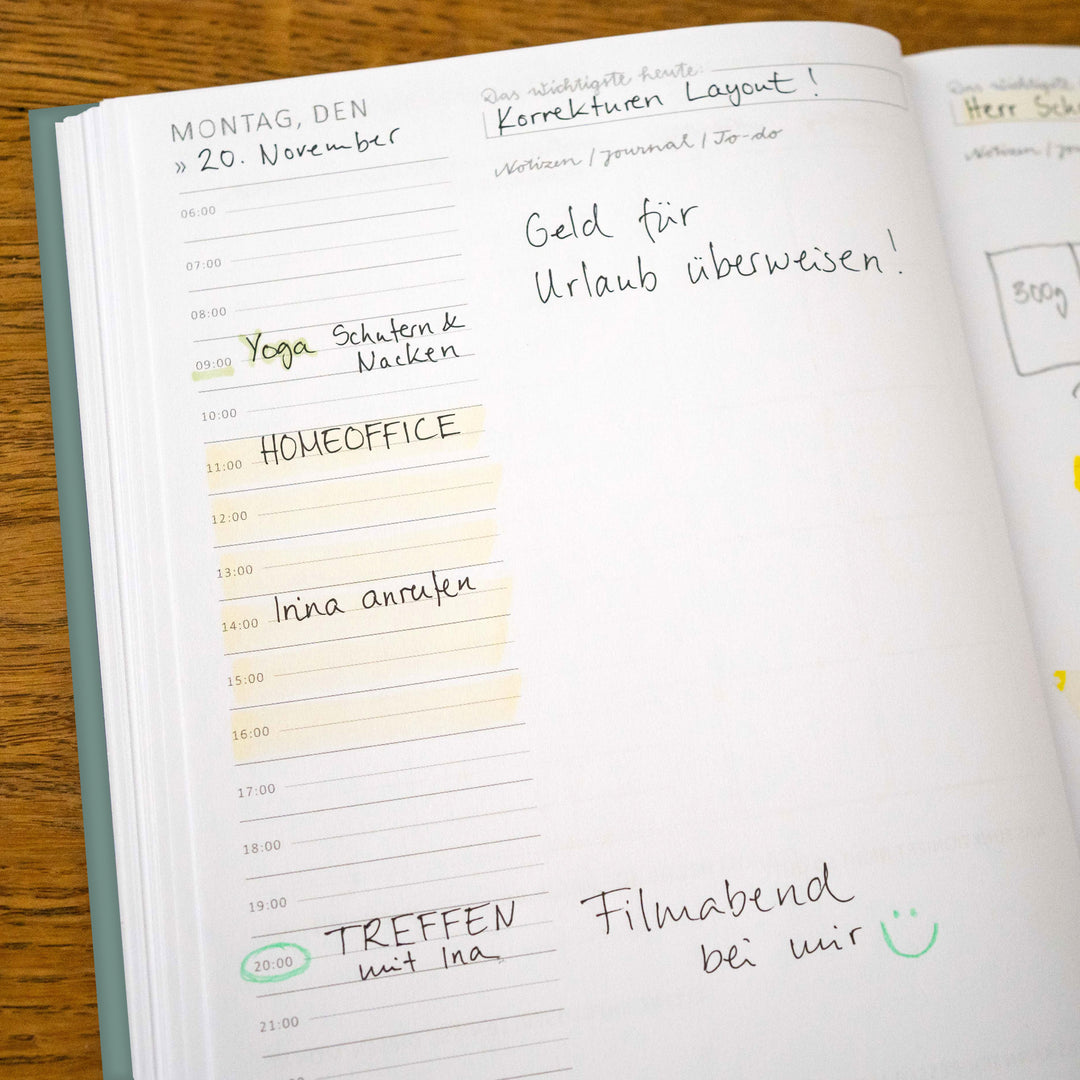 MONTAG, DEN
» 20. November
06:00
07:00
08:00
09:00 Yoga Schutern &
Nacken
10:00
HOMEOFFICE
11:00
12:00
13:00
14:00 Irina anrufen
15:00
16:00
17:00
18:00
19:00
TREFFEN
20:00 mit Ina
21:00
Das wichtigste heute:
Korrekturen Layout!
Notizen / Journal / To-do
Geld für
Urlaub überweisen!
Filmabend
bei mir
Das wichtigste
Herr
Notizen
300g